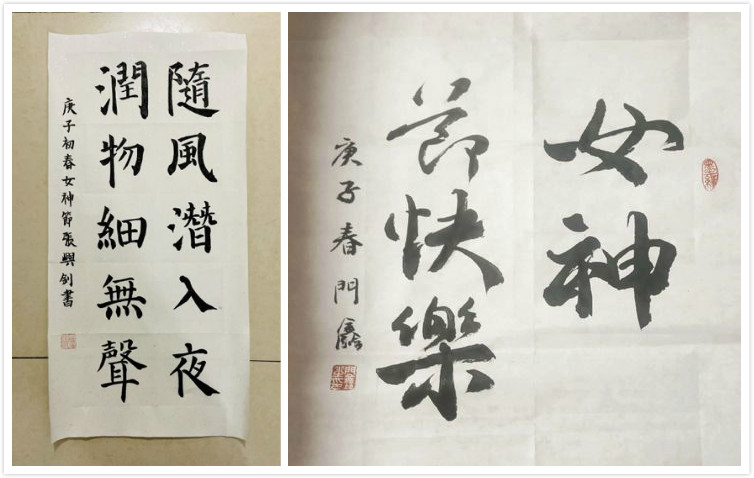 隨風潛入夜
潤物細無聲
庚子初春女神節張興釗書
女神
節快樂
庚子春門鑫